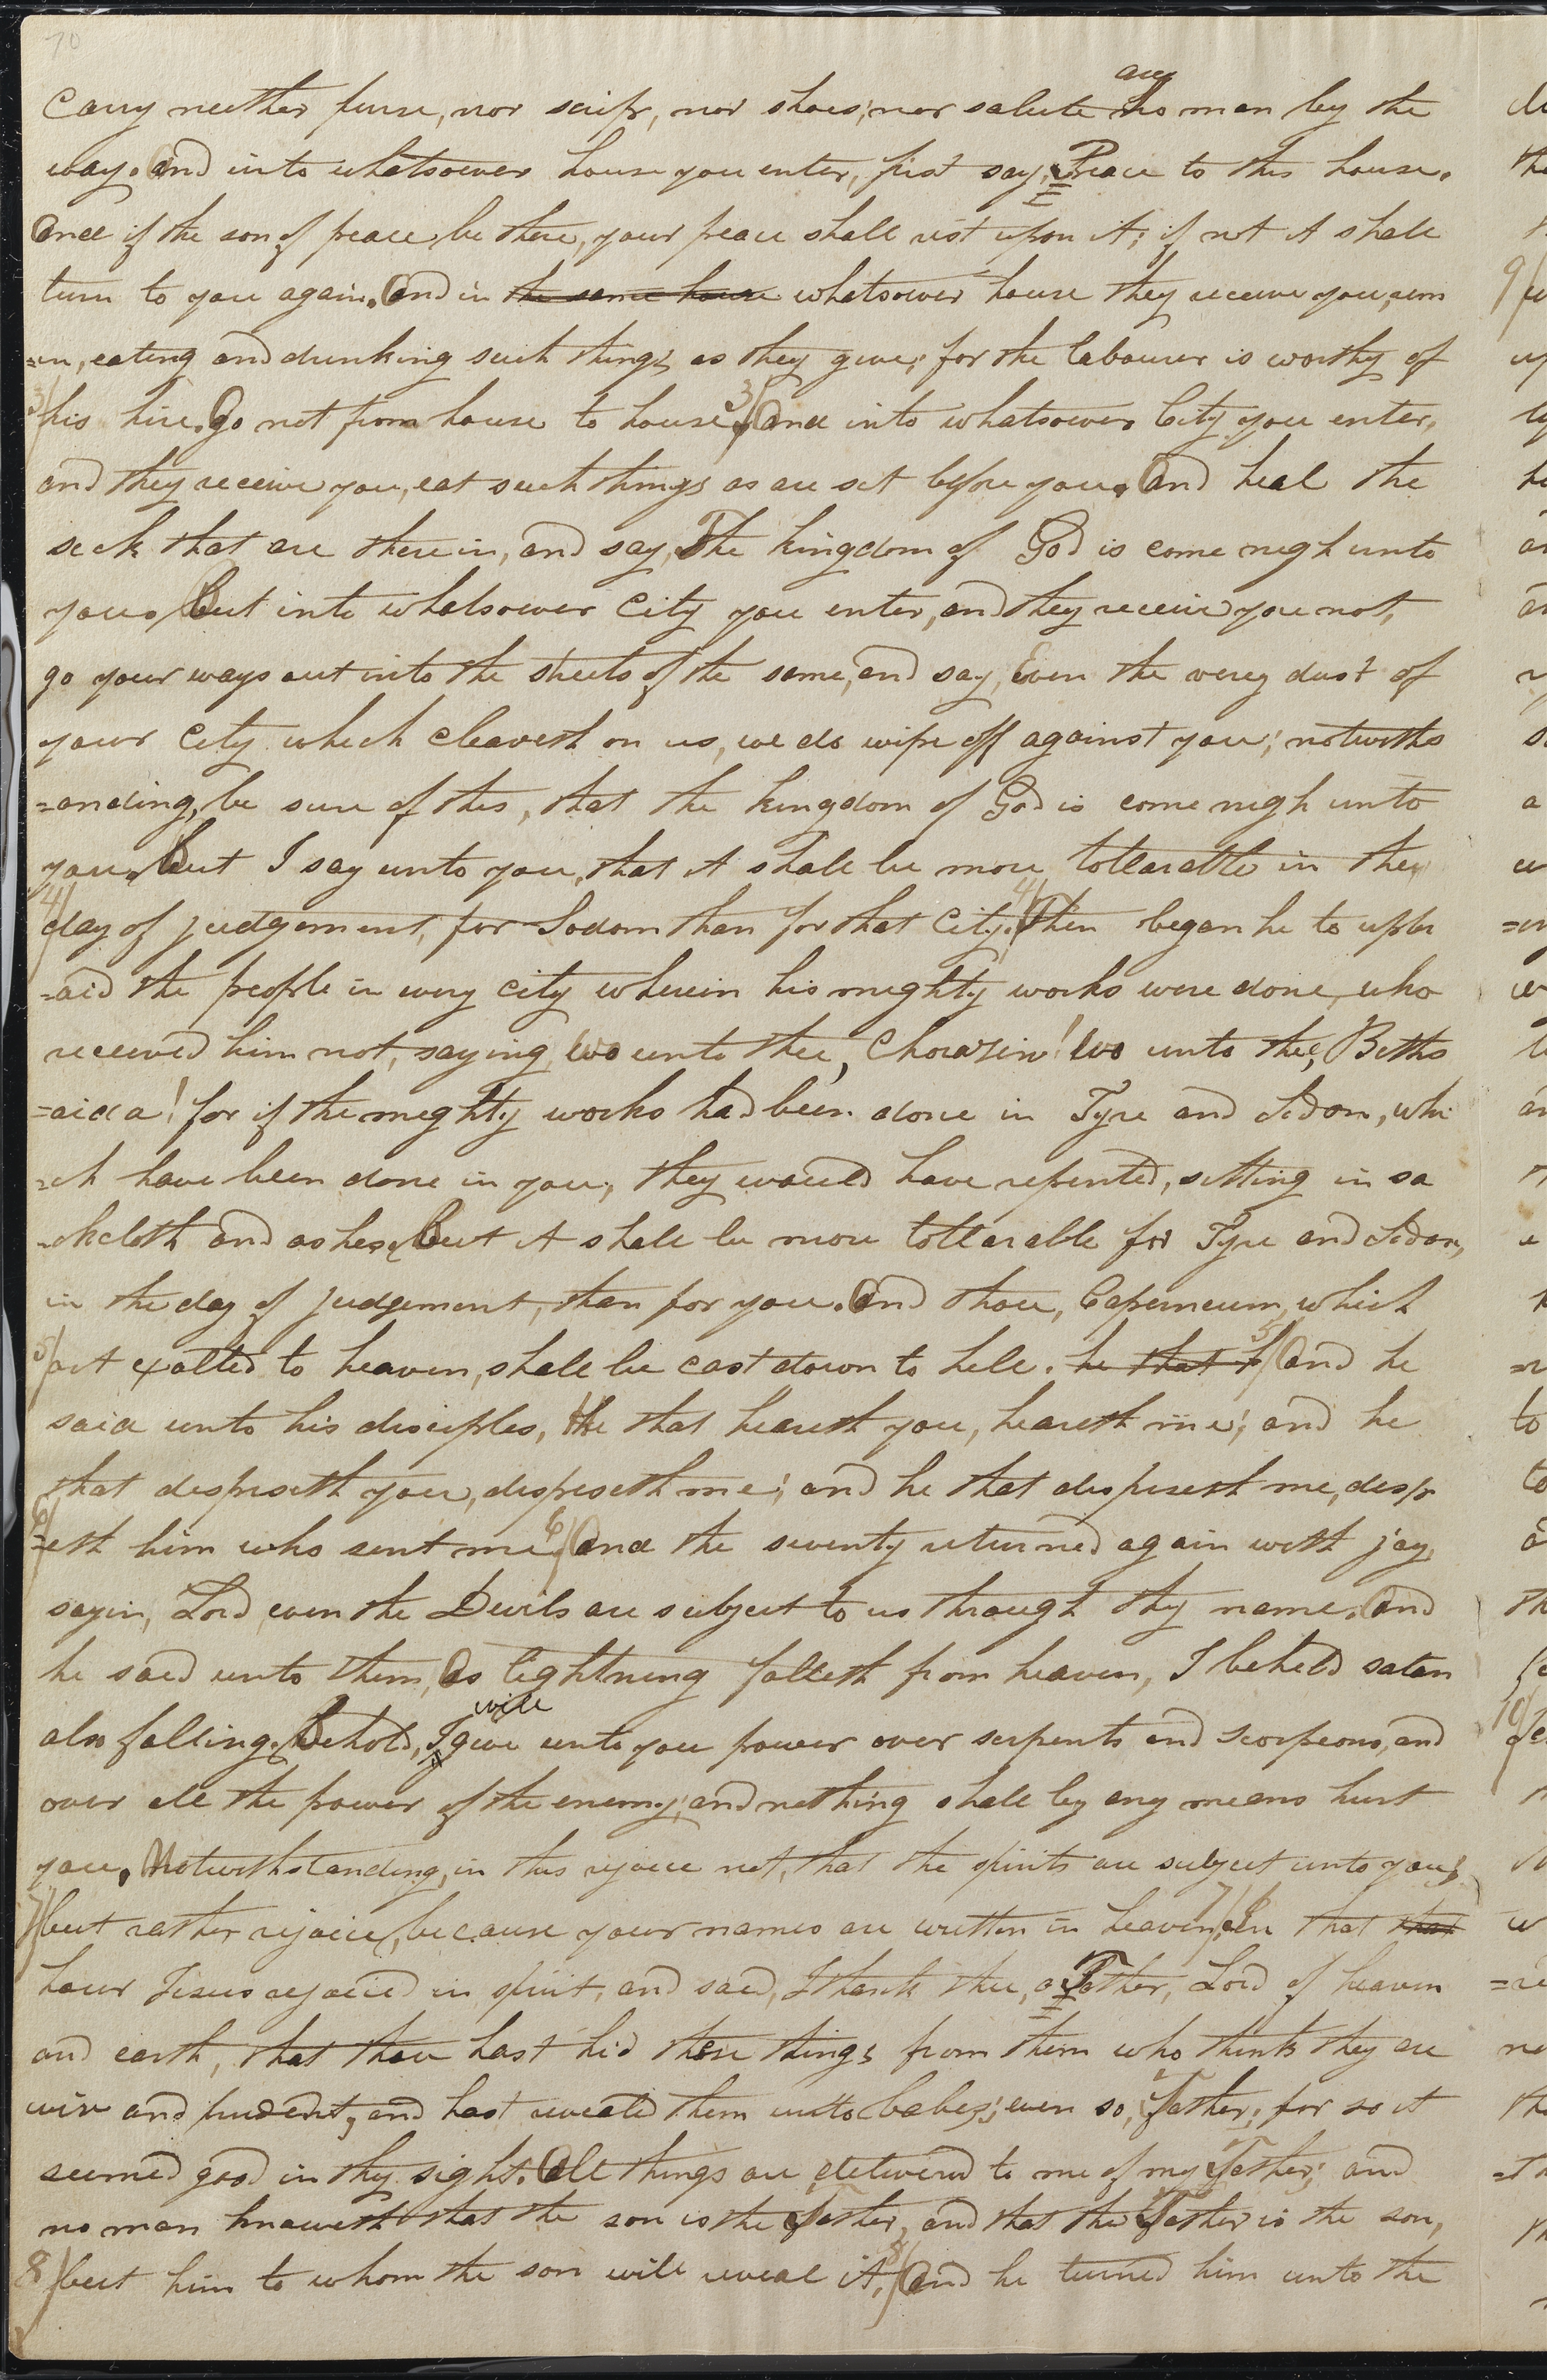 70
any
Carry neither purse, nor scrip, nor shoes; nor salute no man by the
way. And into whatsoever house you enter, first say, Peace to this house.
And if the son of peace be there, your peace shall rest upon it; if not it shall
turn to you again. And in the same house whatsoever house they receive you, rem
=in, eating and drinking such things as they give; for the labourer is worthy of
3/ his hire. Go not from house to house. 3/ And into whatsoever City you enter,
and they receive you, eat such things as are set before you. And heal the
sick that are therein, and say, The kingdom of God is come nigh unto
you. But into whatsoever City you enter, and they receive you not,
go your ways out into the streets of the same, and say, Even the very dust of
your City which cleaveth on us, we do wipe off against you; notwiths
=anding, be sure of this, that the kingdom of God is come nigh unto
you. But I say unto you, that it shall be more tollarable in the
4/ day of judgement, for Sodom than for that City. 4/ Then began he to upbr
=aid the people in every city wherein his mighty works were done, who
received him not, saying, Wo unto thee, Chorazin! Wo unto thee, Beths
=aida! for if the mighty works had been done in Tyre and Sidon, whi
=ch have been done in you, they would have repented, sitting in sa
=ckcloth and ashes. But it shall be more tollarable for Tyre and Sidon,
in the day of judgement, than for you. And thou, Caperneum, which
5/ art exalted to heaven, shall be cast down to hell. he that h 5/ And he
said unto his disciples, He that heareth you, heareth me; and he
that despiseth you, despiseth me; and he that dispiseth me, desp
6/ =eth him who sent me. 6/ And the seventy returned again with joy,
sayin, Lord, even the Devils are subject to us through thy name. And
he said unto them, As lightning falleth from heaven, I beheld satan
will
also falling. Behold, I give unto you power over serpents and scorpions, and
over all the power of the enemy; and nothing shall by any means hurt
you. Notwithstanding, in this rejoice not, that the spirits are subject unto you;
7/ but rather rejoice, because your names are written in heaven. 7/ In that that
hour Jesus rejoiced in spirit, and said, I thank thee, o Father, Lord of heaven
and earth, that thou hast hid these things from them who think they are
wise and prudent, and hast revealed them unto babes; even so, Father; for so it
seemed good in thy sight. All things are delivered to me of my Father; and
no man knoweth that the son is the Father, and that the Father is the son,
8/ but him to whom the son will reveal it. 8/ And he turned him unto the